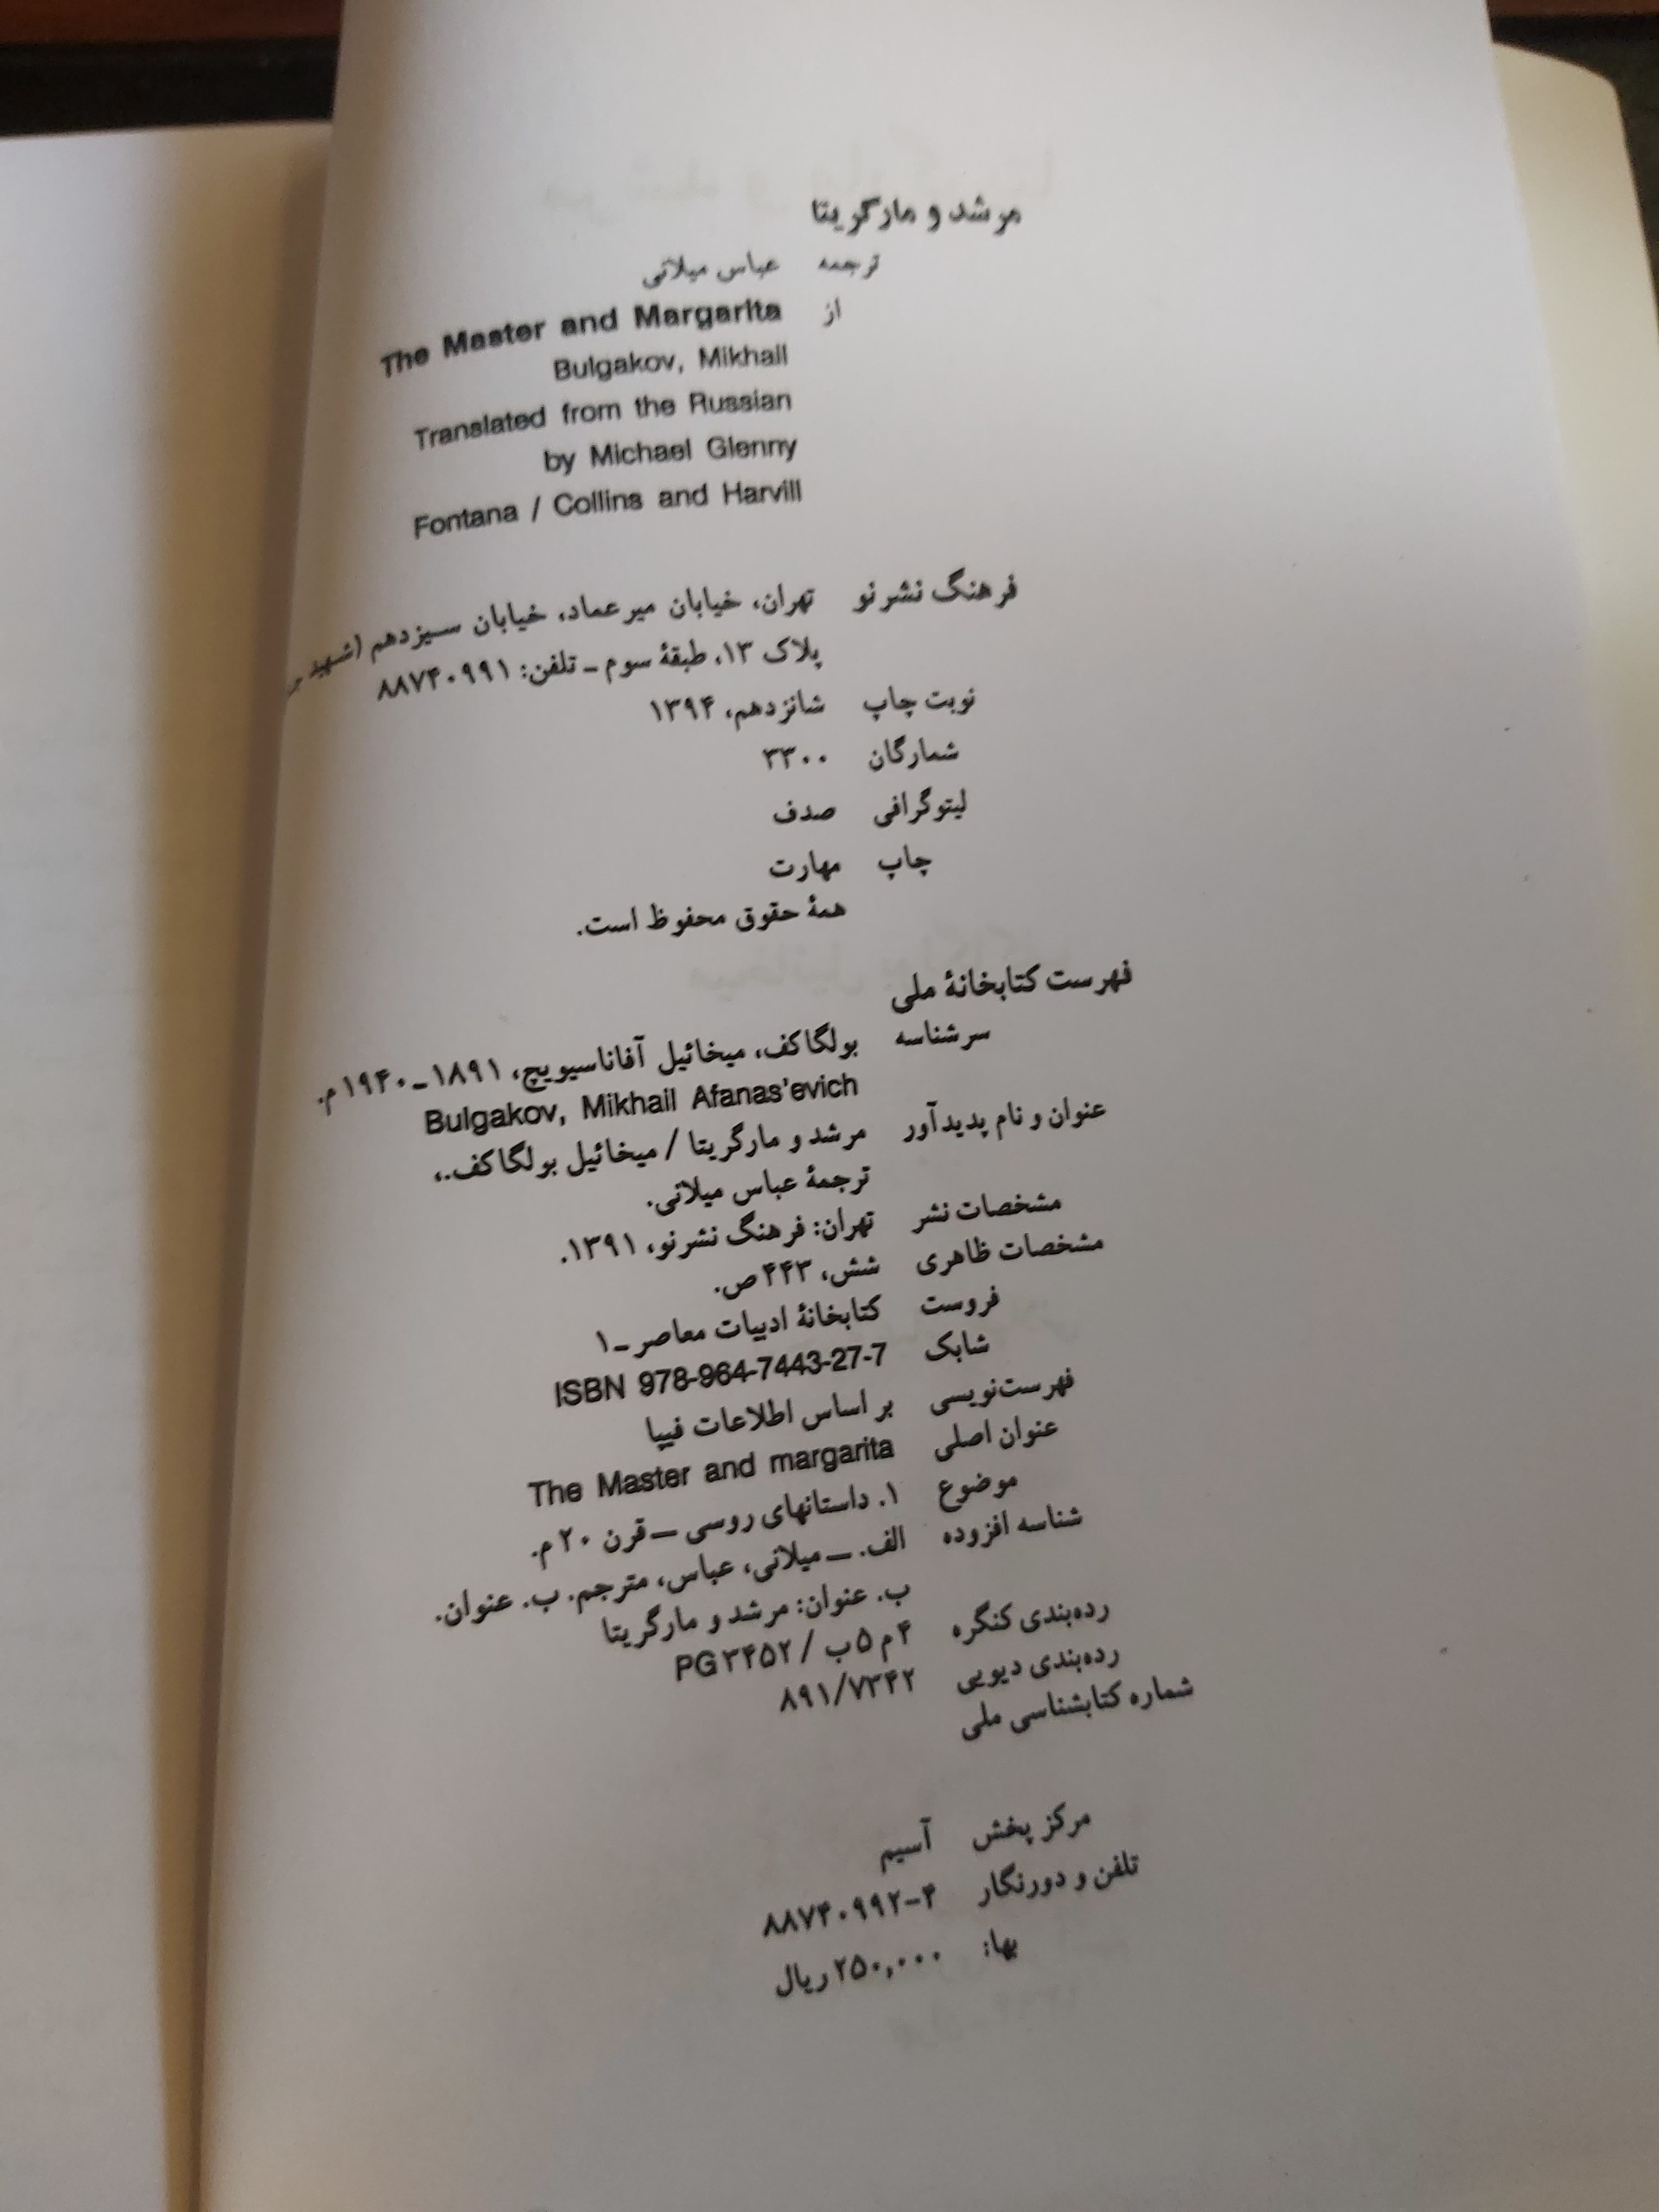 مرشد و مارگریتا
ترجمه عباس میلانی
از The Master and Margarita
Bulgakov, Mikhail
Translated from the Russian
by Michael Glenny
Fontana / Collins and Harvill
فرهنگ نشرنو تهران، خیابان میرعماد، خیابان سیزدهم (شهید
پلاک ۱۳، طبقهٔ سوم ـ تلفن: ۸۸۷۴۰۹۹۱
نوبت چاپ شانزدهم، ۱۳۹۴
شمارگان ۳۳۰۰
لیتوگرافی صدف
چاپ مهارت
همهٔ حقوق محفوظ است.
فهرست کتابخانهٔ ملی
سرشناسه بولگاکف، میخائیل آفاناسیویچ، ۱۸۹۱ـ۱۹۴۰م.
Bulgakov, Mikhail Afanas'evich
عنوان و نام پدیدآور مرشد و مارگریتا / میخائیل بولگاکف.،
ترجمهٔ عباس میلانی.
مشخصات نشر تهران: فرهنگ نشرنو، ۱۳۹۱.
مشخصات ظاهری شش، ۴۴۳ص.
فروست کتابخانهٔ ادبیات معاصر ـ۱
شابک ISBN 978-964-7443-27-7
فهرست‌نویسی بر اساس اطلاعات فیپا
عنوان اصلی The Master and margarita
موضوع ۱. داستانهای روسی ــ قرن ۲۰م.
شناسه افزوده الف. ــ میلانی، عباس، مترجم. ب. عنوان.
ب. عنوان: مرشد و مارگریتا
رده‌بندی کنگره ۴م۵ب / PG۳۴۵۲
رده‌بندی دیویی ۸۹۱/۷۳۴۲
شماره کتابشناسی ملی
مرکز پخش آسیم
تلفن و دورنگار ۸۸۷۴۰۹۹۲-۴
بها: ۲۵۰,۰۰۰ریال